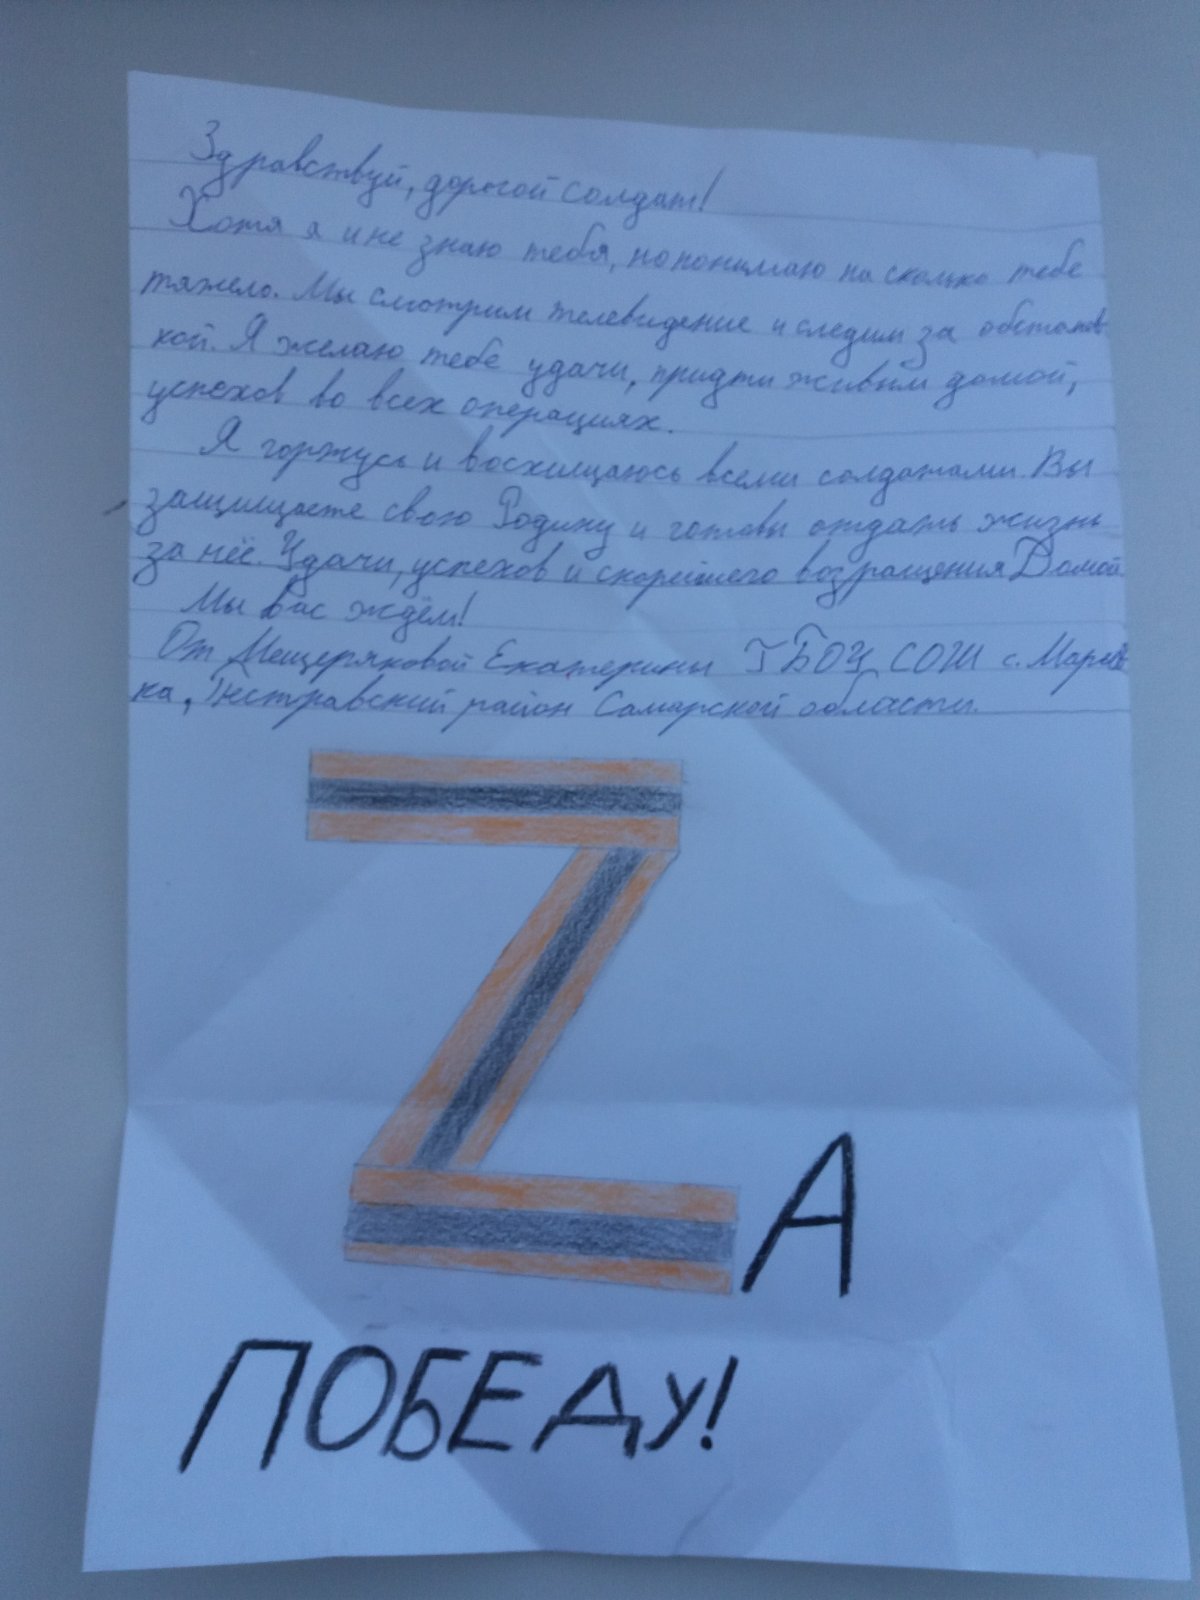 Здравствуй, дорогой солдат!
Хотя я и не знаю тебя, но понимаю на сколько тебе
тяжело. Мы смотрим телевидение и следим за обстанов
кой. Я желаю тебе удачи, придти живым домой,
успехов во всех операциях.
Я горжусь и восхищаюсь всеми солдатами. Вы
защищаете свою Родину и готовы отдать жизнь
за неё. Удачи, успехов и скорейшего возращения Домой
Мы вас ждём!
От Мещеряковой Екатерины ГБОУ СОШ с. Марьев
ка, Пестравский район Самарской области.
ZА
ПОБЕДУ!